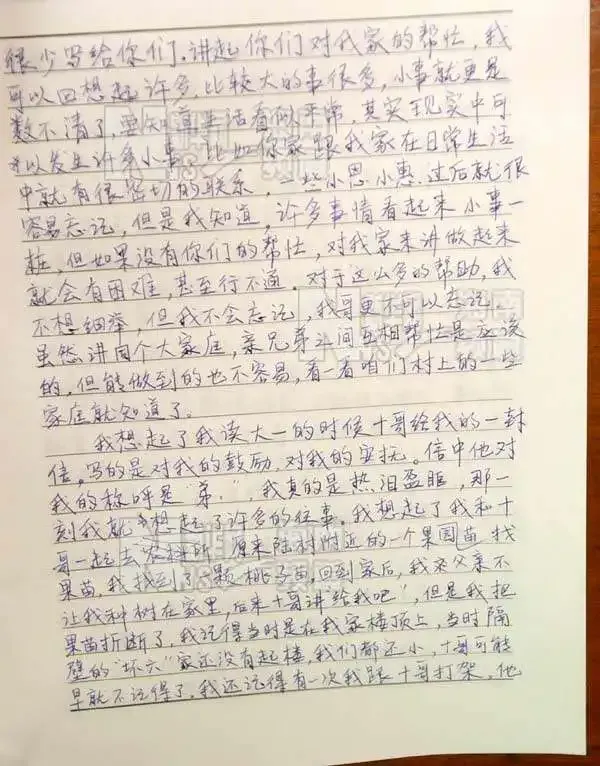 很少写给你们.讲起你们对我家的帮忙,我
可以回想起许多,比较大的事很多,小事就更是
数不清了,要知道生活看似平常,其实现实中可
以发生许多小事,比如你家跟我家在日常生活
中就有很密切的联系,一些小恩小惠.过后就很
容易忘记,但是我知道,许多事情看起来小事一
桩,但如果没有你们的帮忙,对我家来讲做起来
就会有困难,甚至行不通.对于这么多的帮助,我
不想细举,但我不会忘记,我哥更不可以忘记.
虽然讲同个大家庭,亲兄弟之间互相帮忙是应该
的,但能做到的也不容易,看一看咱们村上的一些
家庭就知道了。
我想起了我读大一的时候十哥给我的一封
信,写的是对我的鼓励,对我的安抚。信中他对
我的称呼是“弟”,我真的是热泪盈眶,那一
刻我就想起了许多的往事。我想起了我和十
哥一起去农科所,原来陆村附近的一个果园苗找
果苗,我找到了一颗桃子苗,回到家后,我父亲不
让我种树在家里,后来十哥讲“给我吧”,但是我把
果苗折断了,我记得当时是在我家楼顶上,当时隔
壁的“坏六”家还没有起楼,我们都还小,十哥可能
早就不记得了.我还记得有一次我跟十哥打架,他